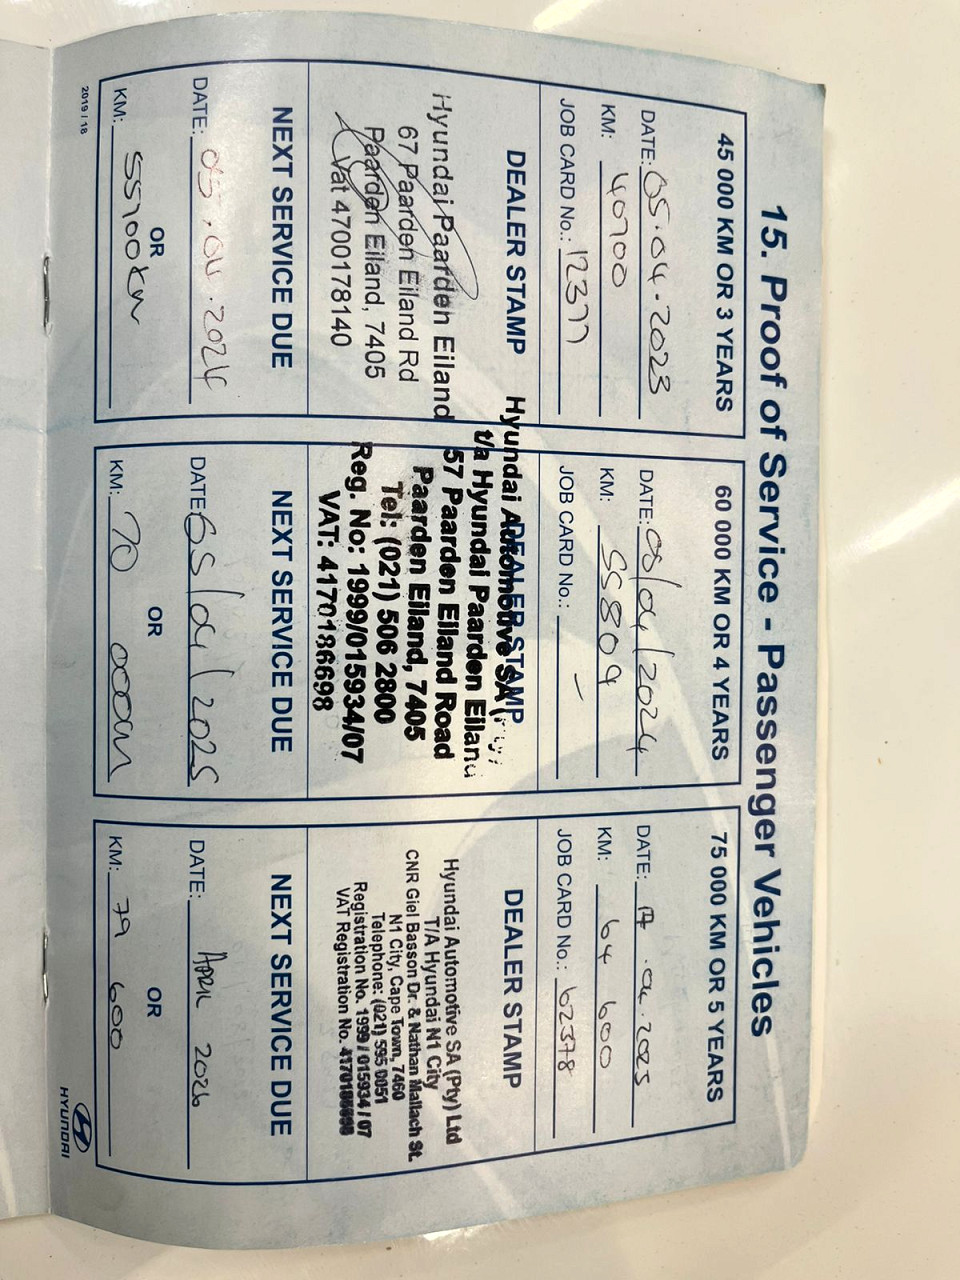 15. Proof of Service - Passenger Vehicles
45 000 KM OR 3 YEARS
DATE: 05.04.2023
KM: 40700
JOB CARD No.: 12377
DEALER STAMP
Hyundai Paarden Eiland
67 Paarden Eiland Rd
Paarden Eiland, 7405
Vat 4700178140
NEXT SERVICE DUE
DATE: 05.04.2024
OR
KM: 55700km
60 000 KM OR 4 YEARS
DATE: 05/04/2024
KM: 55809
JOB CARD No.: -
DEALER STAMP
Hyundai Automotive SA (Pty)
t/a Hyundai Paarden Eiland
57 Paarden Eiland Road
Paarden Eiland, 7405
Tel: (021) 506 2800
Reg. No: 1999/015934/07
VAT: 4170186698
NEXT SERVICE DUE
DATE: 05/04/2025
OR
KM: 70 000km
75 000 KM OR 5 YEARS
DATE: 17.04.2025
KM: 64 600
JOB CARD No.: 62378
DEALER STAMP
Hyundai Automotive SA (Pty) Ltd
T/A Hyundai N1 City
CNR Giel Basson Dr. & Nathan Mallach St.
N1 City, Cape Town, 7460
Telephone: (021) 595 0051
Registration No. 1999 / 015934 / 07
VAT Registration No. 4170186698
NEXT SERVICE DUE
DATE: APRIL 2026
OR
KM: 79 600
2019 / 18
HYUNDAI